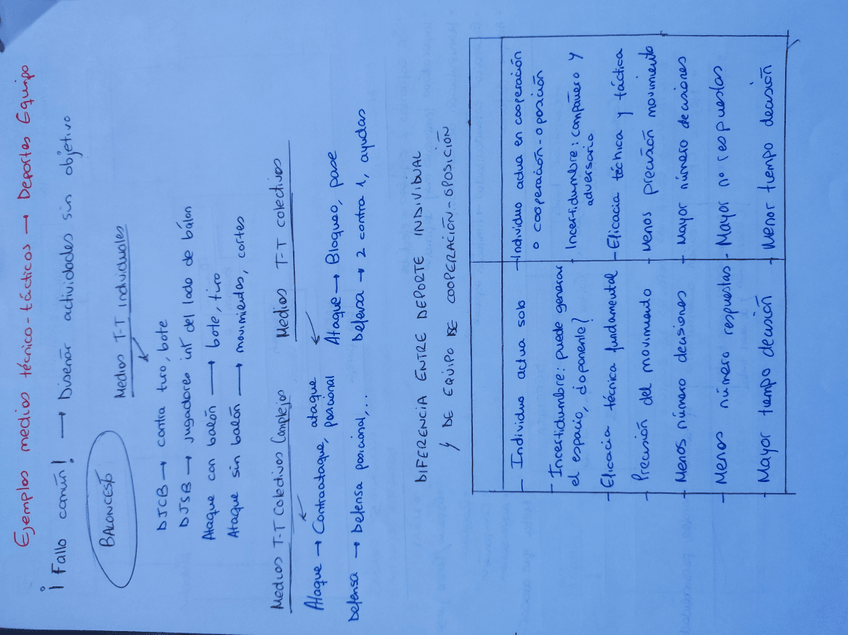 Ejemplos medios técnico-tácticos → Deportes Equipo
¡Fallo común! → Diseñar actividades sin objetivo
BALONCESTO
Medios T-T individuales
DJCB → contra tiro, bote
DJSB → jugadores int del lado de balón
Ataque con balón → bote, tiro
Ataque sin balón → movimientos, cortes
Medios T-T Colectivos Complejos
Ataque → Contraataque, ataque posicional
Defensa → Defensa posicional,...
Medios T-T colectivos
Ataque → Bloqueo, pase
Defensa → 2 contra 1, ayudas
DIFERENCIA ENTRE DEPORTE INDIVIDUAL
Y DE EQUIPO DE COOPERACIÓN-OPOSICIÓN
- Individuo actua solo
- Incertidumbre: puede generar
el espacio, ¿oponente?
- Eficacia técnica fundamental
- Precisión del movimiento
- Menos número decisiones
- Menos número respuestas
- Mayor tiempo decisión
- Individuo actua en cooperación
o cooperación-oposición
- Incertidumbre: compañero y
adversario
- Eficacia técnica y táctica
- Menos precisión movimiento
- Mayor número decisiones
- Mayor nº respuestas
- Menor tiempo decisión